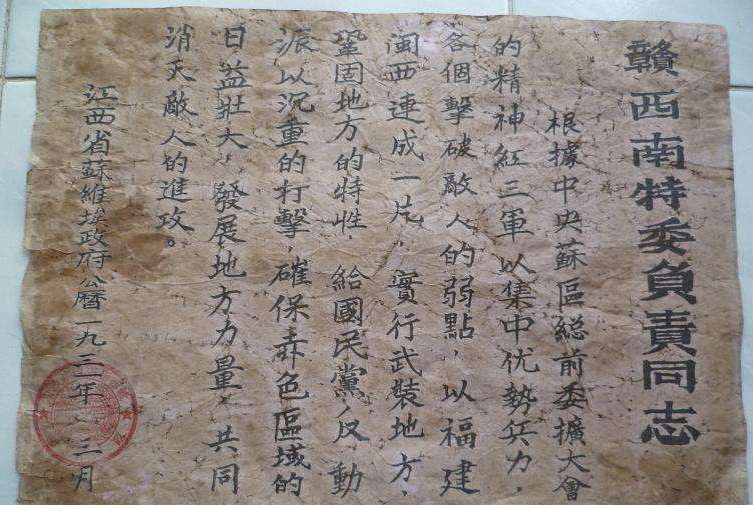 贛西南特委負責同志
根據中央蘇區総前委擴大會
的精神紅三軍以集中优勢兵力，
各個擊破敵人的弱點，以福建
閩西連成一片，實行武裝地方，
鞏固地方的特性，給國民黨反動
派以沉重的打擊，確保赤色區域的
日益壯大，發展地方力量，共同
消灭敵人的進攻。
江西省蘇維埃政府公曆一九三一年三月